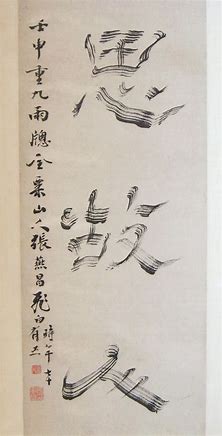 思故人
壬申重九雨牕金粟山人張燕昌飛白
時年七十